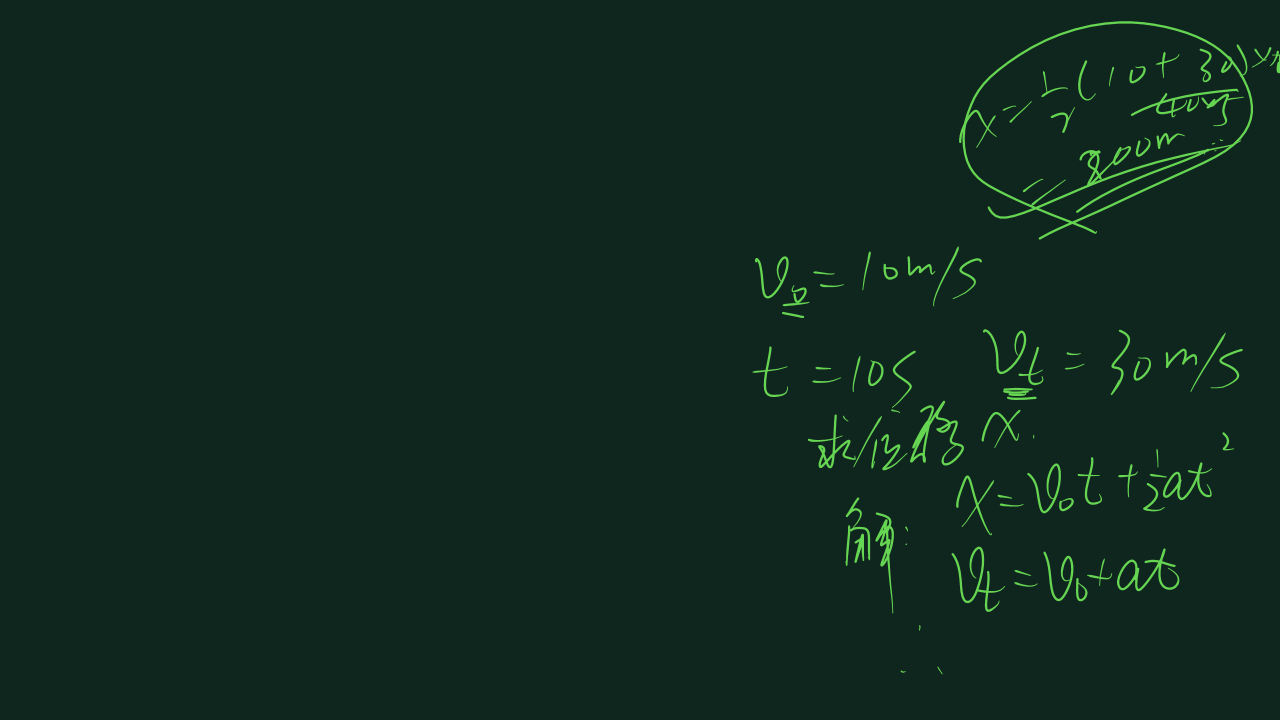 x=½(10+30)×t
40m/s
=800m
v₀=10m/s
t=10s vₜ=30m/s
求位移x.
解: x=v₀t+½at²
vₜ=v₀+at